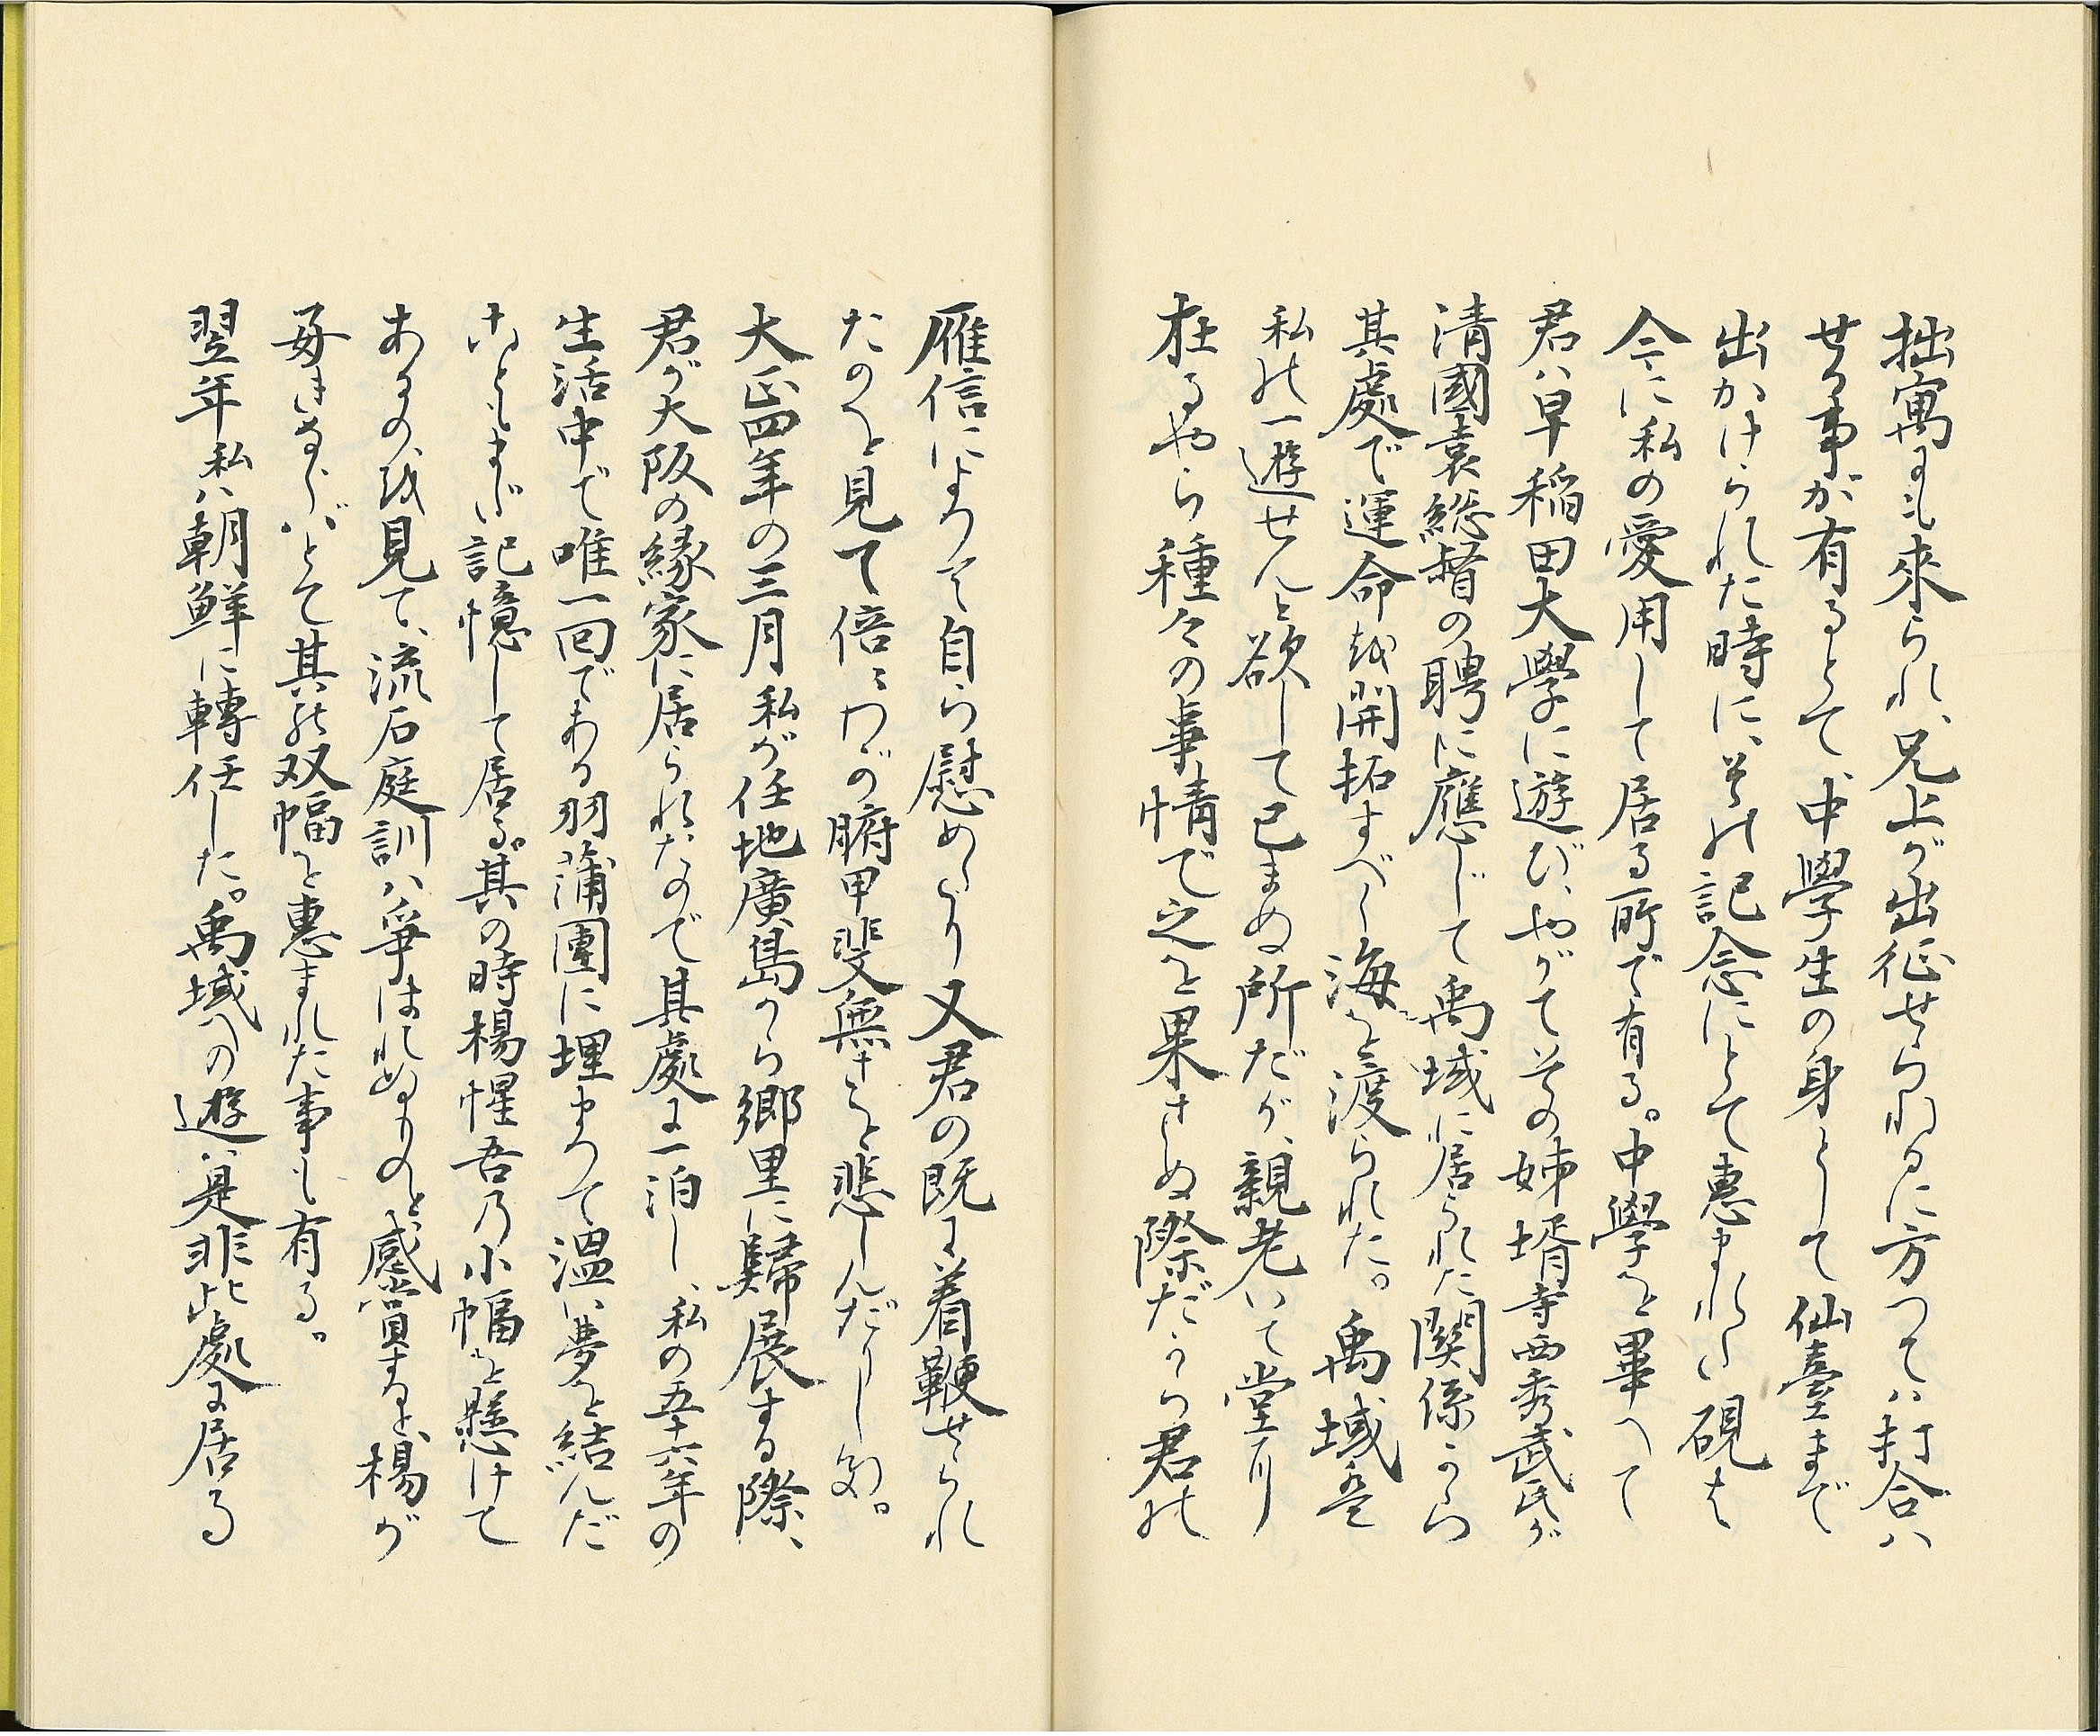 拙寓にも來られ、兄上が出征せられるに方つては打合は
せる事が有るとて、中學生の身として仙臺まで
出かけられた時に、その記念にとて惠まれた硯は
今に私の愛用して居る所で有る。中學を畢へて
君は早稲田大學に遊び、やがてその姉壻寺西秀武氏が
清國袁総督の聘に應じて禹域に居られた関係から
其處で運命を開拓すべく海を渡られた。禹域は
私の一遊せんと欲して已まぬ所だが、親老いて堂に
在るやら種々の事情で之を果さぬ際だから君の
雁信によつて自ら慰めたり又君の既に着鞭せられ
たのを見て倍〻わが腑甲斐無さを悲しんだりした。
大正四年の三月私が任地廣島から郷里に歸展する際、
君が大阪の縁家に居られたので其處に一泊し、私の五十六年の
生活中で唯一回である羽蒲團に埋まつて溫い夢を結んだ
こともまだ記憶して居る。其の時楊惺吾の小幅を懸けて
あるのを見て、流石庭訓は爭はれぬものと感賞すると、楊が
好きならばとて其の双幅を惠まれた事も有る。
翌年私は朝鮮に轉任した。禹域への遊は是非此處に居る